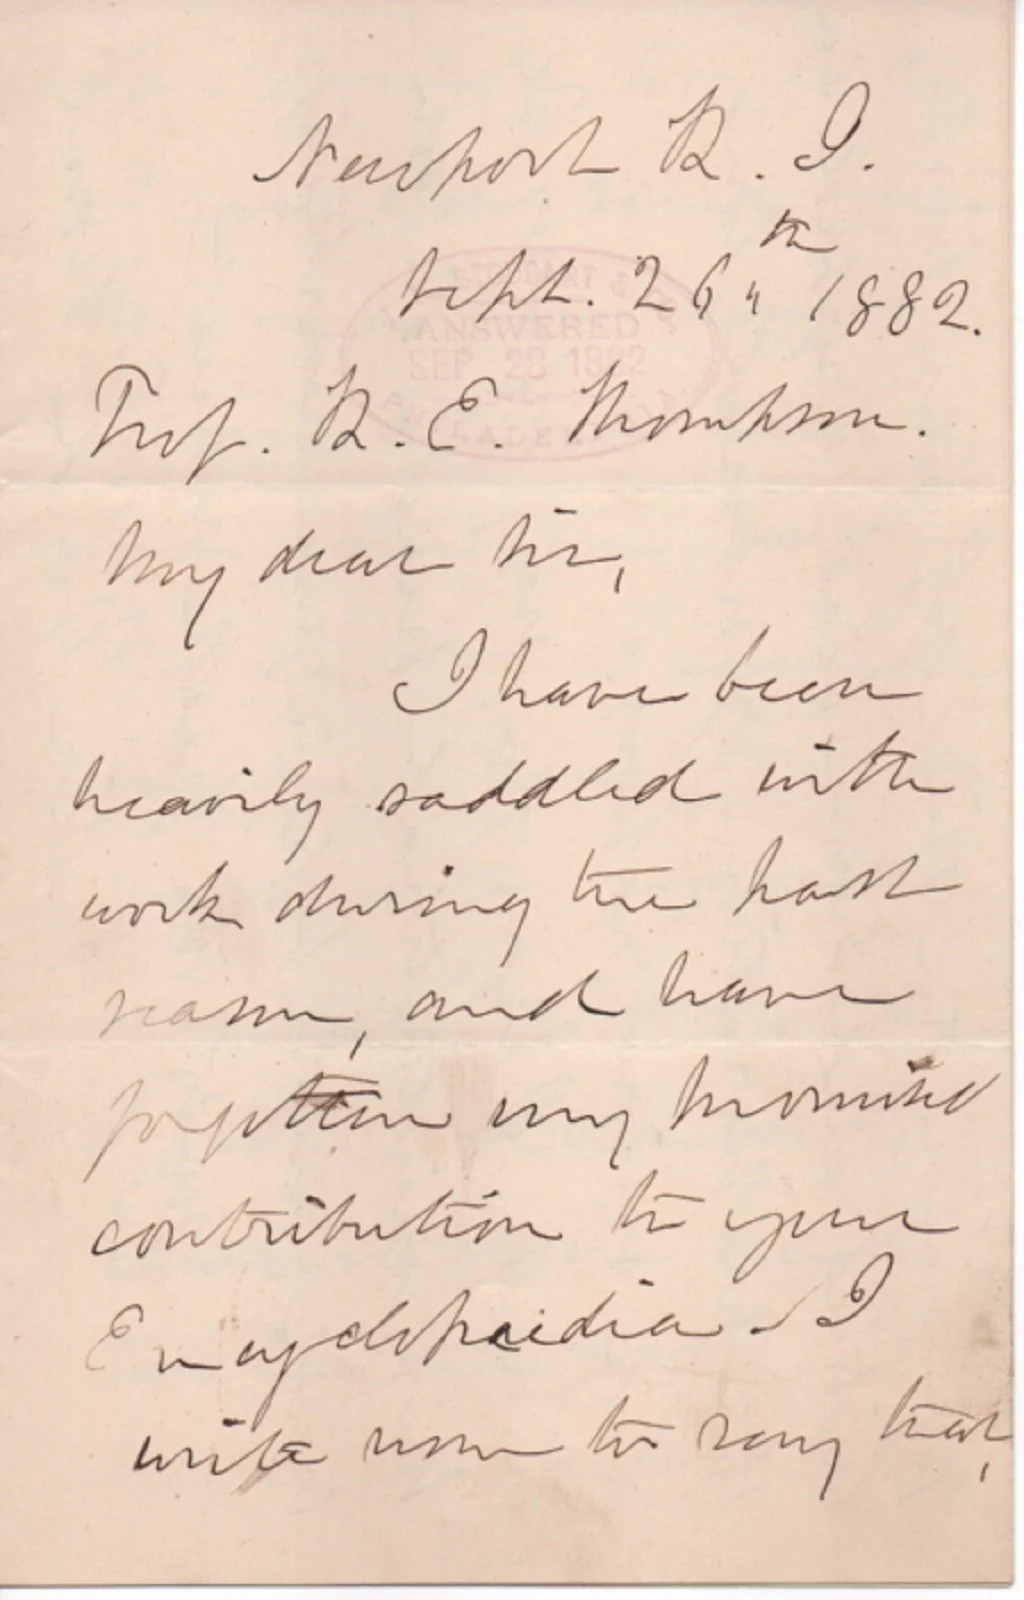 Newport R. I.
Sept. 26th 1882.
ANSWERED
SEP 28 1882
Prof. R. E. Thompson.
My dear Sir,
I have been
heavily saddled with
work during the past
season, and have
forgotten my promised
contribution to your
Encyclopaedia. I
write now to say that,